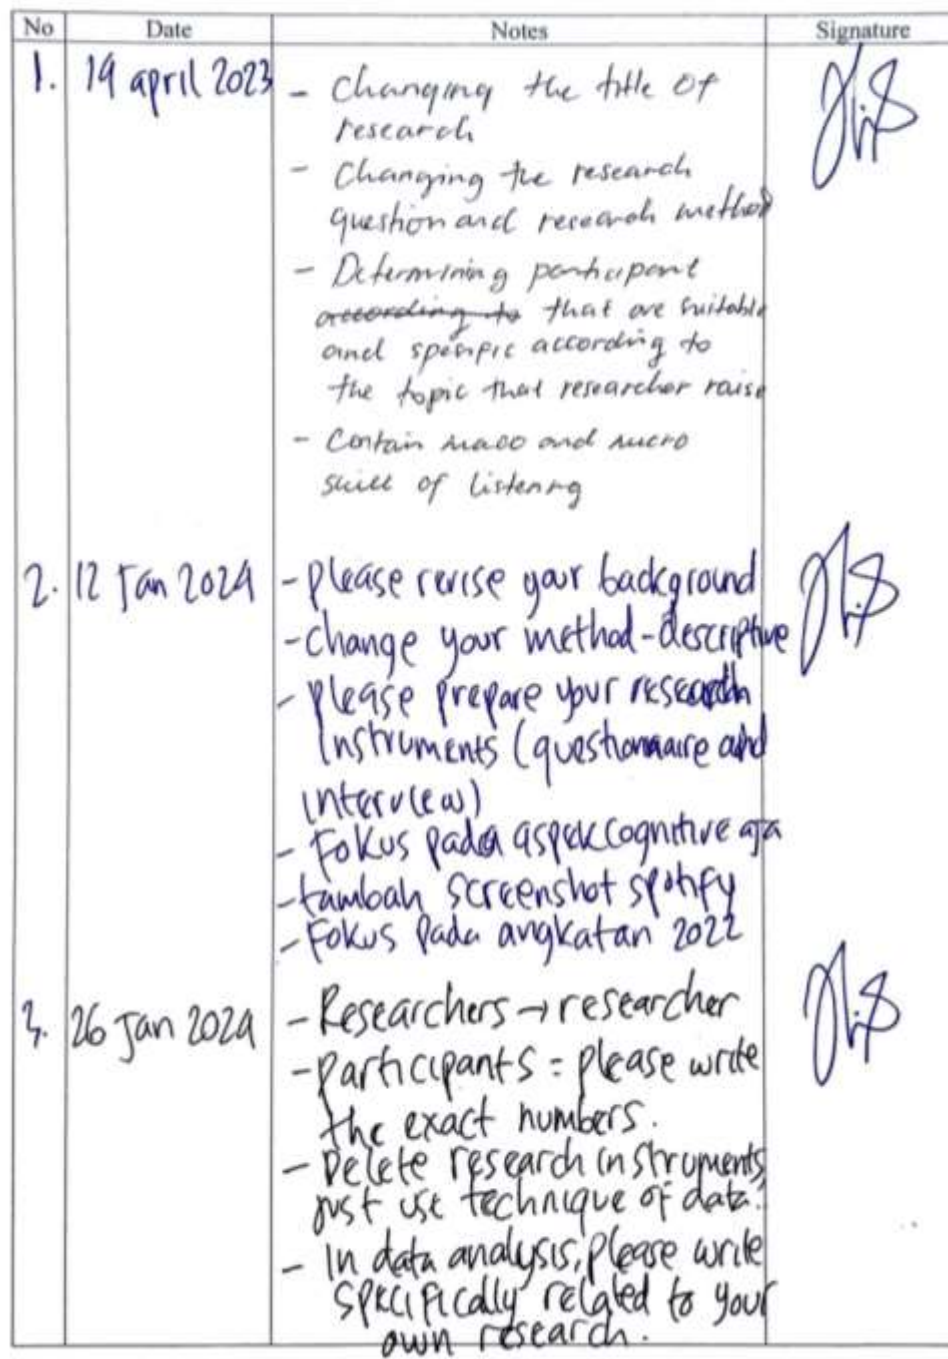 No Date Notes Signature
1. 19 april 2023 - Changing the title of
research
- Changing the research
question and research method
- Determining participant
according to that are suitable
and specific according to
the topic that researcher raise
- Contain maco and micro
skill of listening
2. 12 Jan 2024 - please revise your background
- change your method - descriptive
- please prepare your research
instruments (questionnaire and
interview)
- Fokus pada aspek cognitive aja
- tambah screenshot spotify
- Fokus pada angkatan 2022
3. 26 Jan 2024 - Researchers → researcher
- participants = please write
the exact numbers.
- Delete research instruments,
just use technique of data.
- In data analysis, please write
specifically related to your
own research.